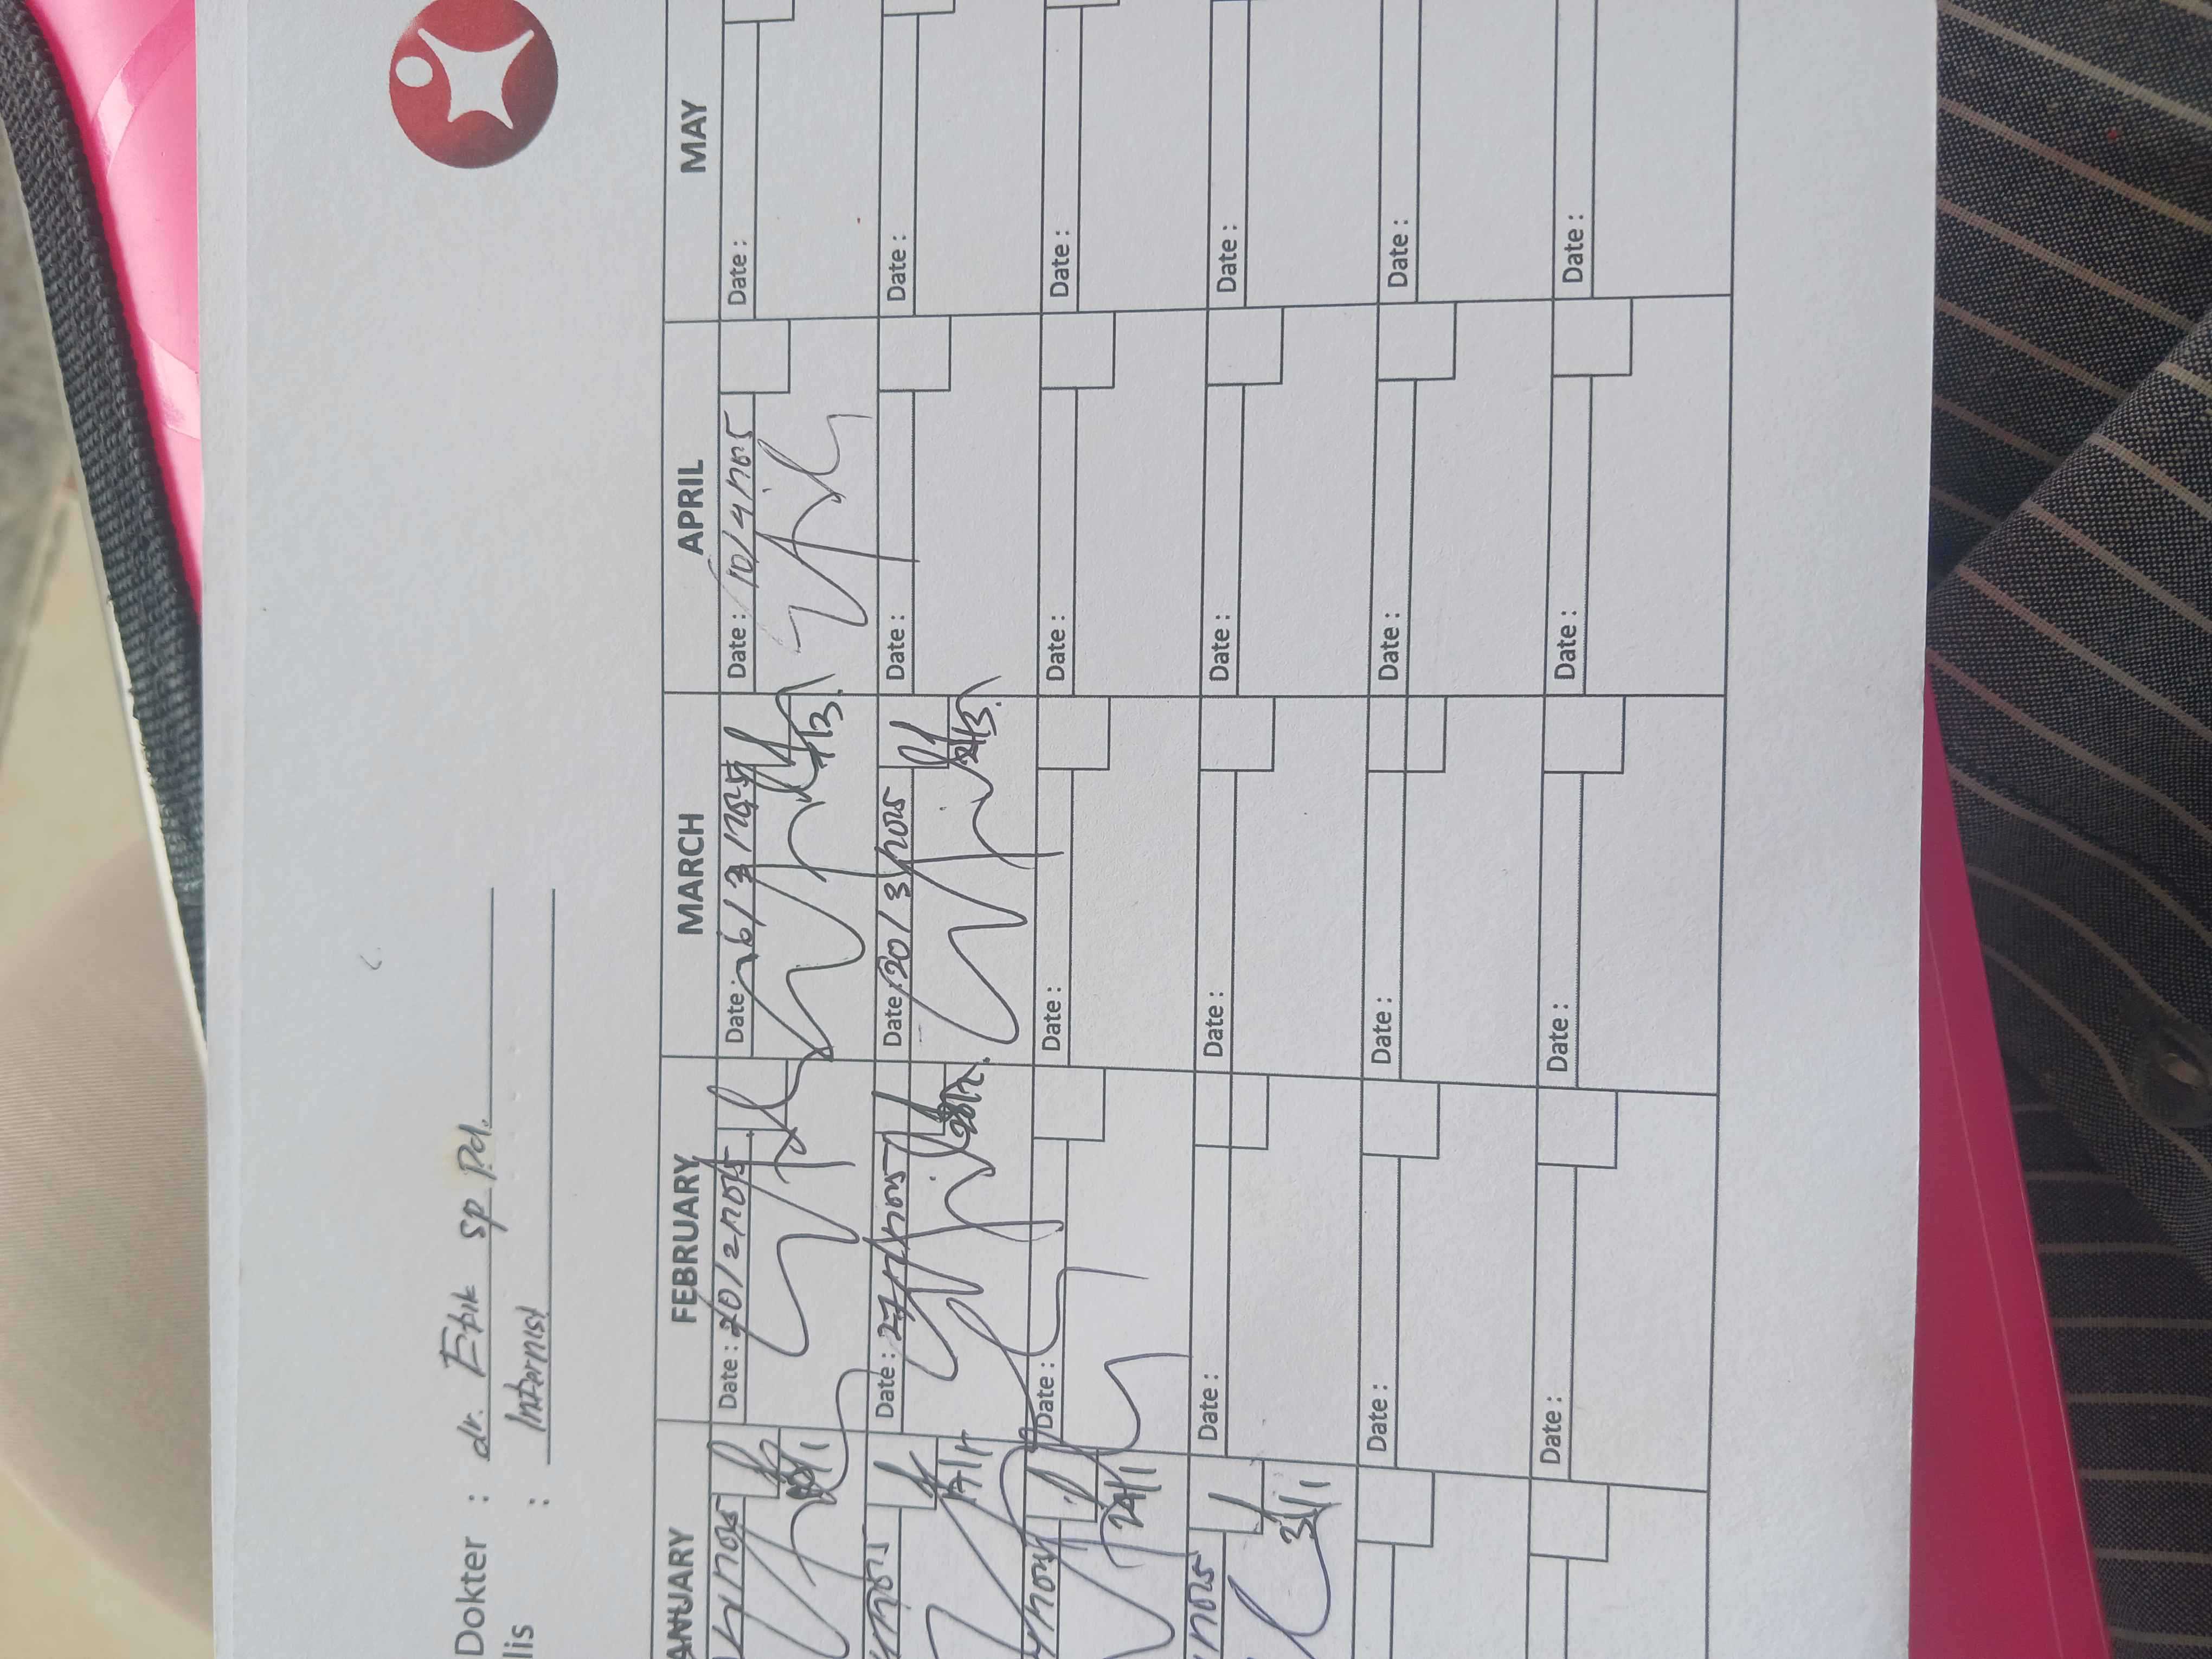 Dokter : dr. Erik sp Pd.
lis : Internist
ANUARY FEBRUARY MARCH APRIL MAY
Date : 20/2/2025 Date : 6/3/2025 Date : 10/4/2025 Date :
17/1 Date : 27/2/2025 28/2 Date : 20/3/2025 21/3 Date : Date :
24/1 Date : Date : Date : Date :
31/1 Date : Date : Date : Date :
Date : Date : Date : Date :
Date : Date : Date : Date :